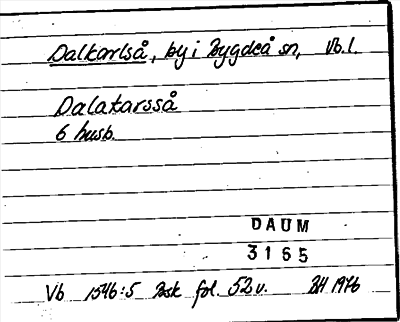 Dalkarlså, by i Bygdeå sn, Vb.l.
Dalakarsså
6 husb.
DAUM
3165
Vb 1546:5 Bsk fol. 52v. BH 1976